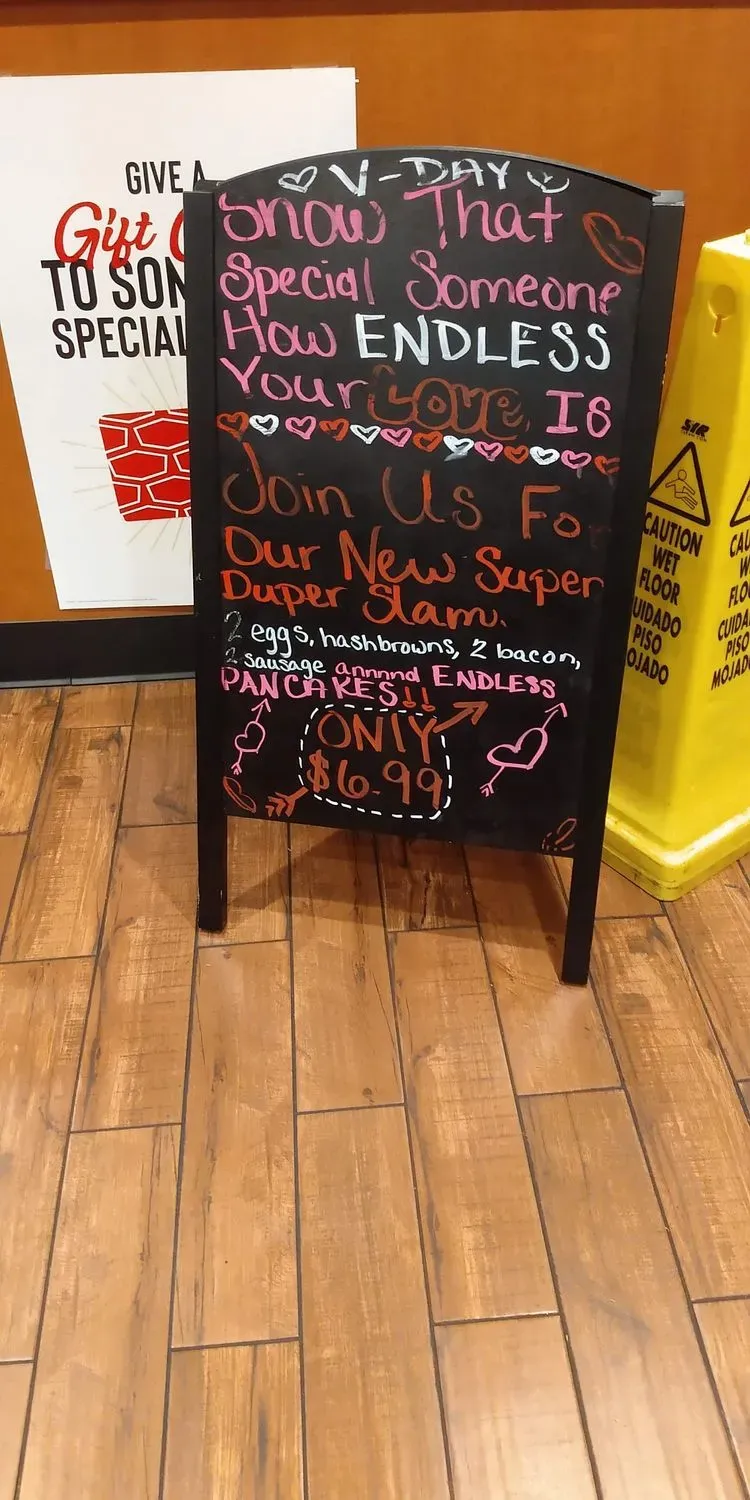 GIVE A
Gift
TO SON
SPECIAL
V-DAY
Show That
Special Someone
How ENDLESS
Your Love Is
Join Us Fo
Our New Super
Duper Slam.
2 eggs, hashbrowns, 2 bacon,
2 sausage annnnd ENDLESS
PANCAKES!!
ONLY
$6.99
CAUTION
WET
FLOOR
UIDADO
PISO
OJADO
CAU
W
FLO
CUIDA
PISO
MOJAD